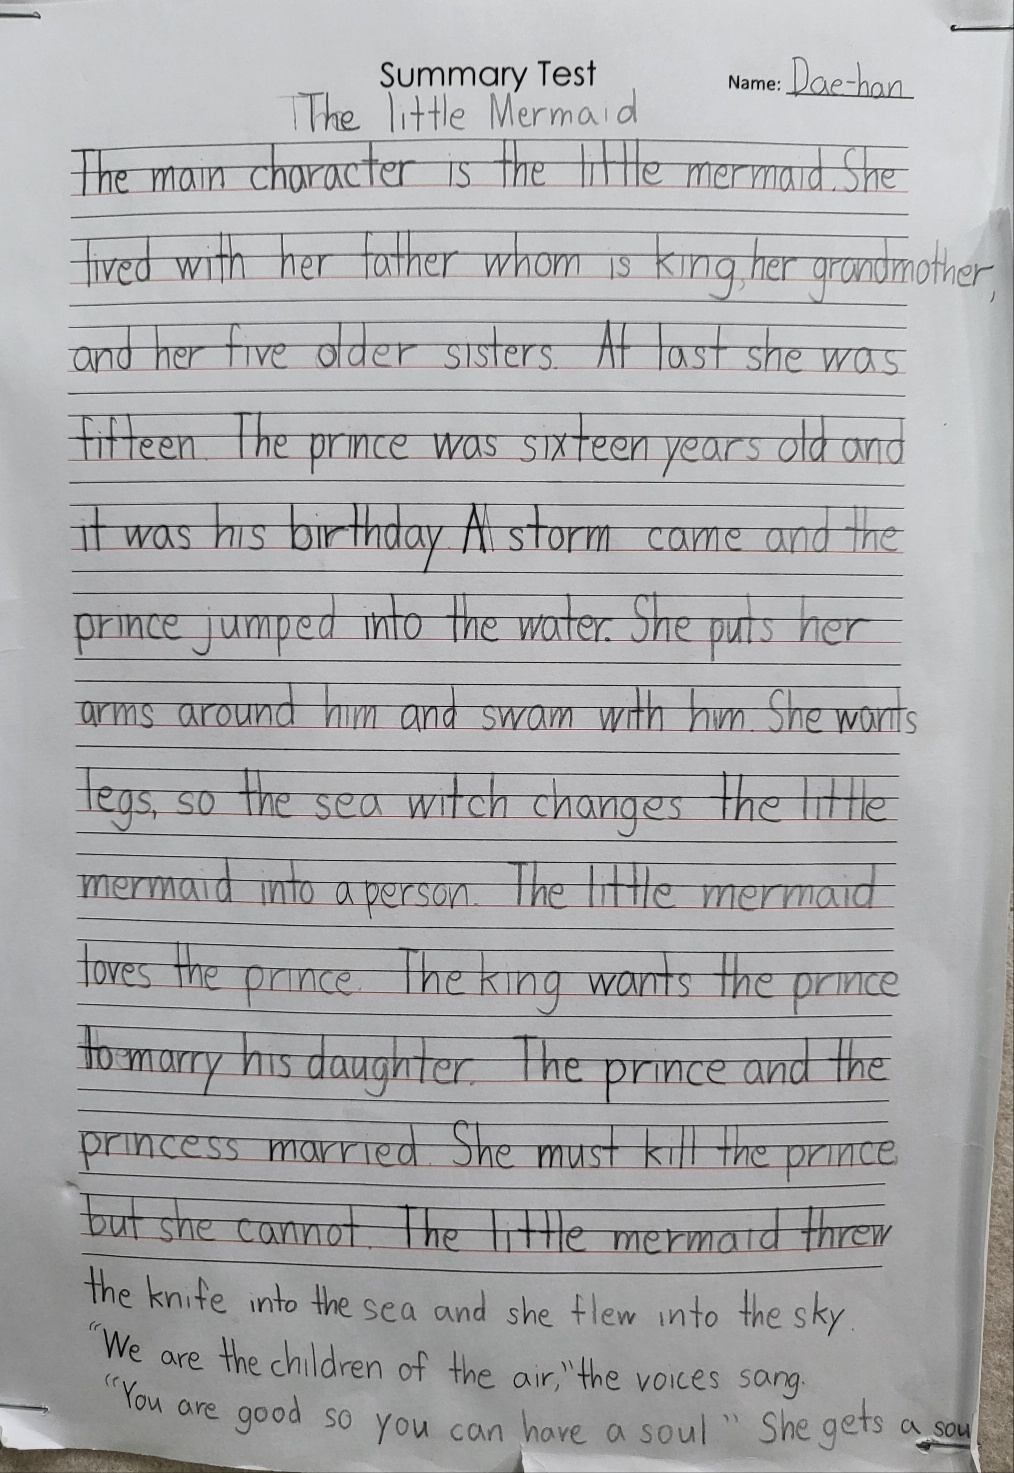 Summary Test
Name: Dae-han
The little Mermaid
The main character is the little mermaid. She
lived with her father whom is king, her grandmother,
and her five older sisters. At last she was
fifteen. The prince was sixteen years old and
it was his birthday. A storm came and the
prince jumped into the water. She puts her
arms around him and swam with him. She wants
legs, so the sea witch changes the little
mermaid into a person. The little mermaid
loves the prince. The king wants the prince
to marry his daughter. The prince and the
princess married. She must kill the prince
but she cannot. The little mermaid threw
the knife into the sea and she flew into the sky.
"We are the children of the air," the voices sang.
"You are good so you can have a soul" She gets a sou